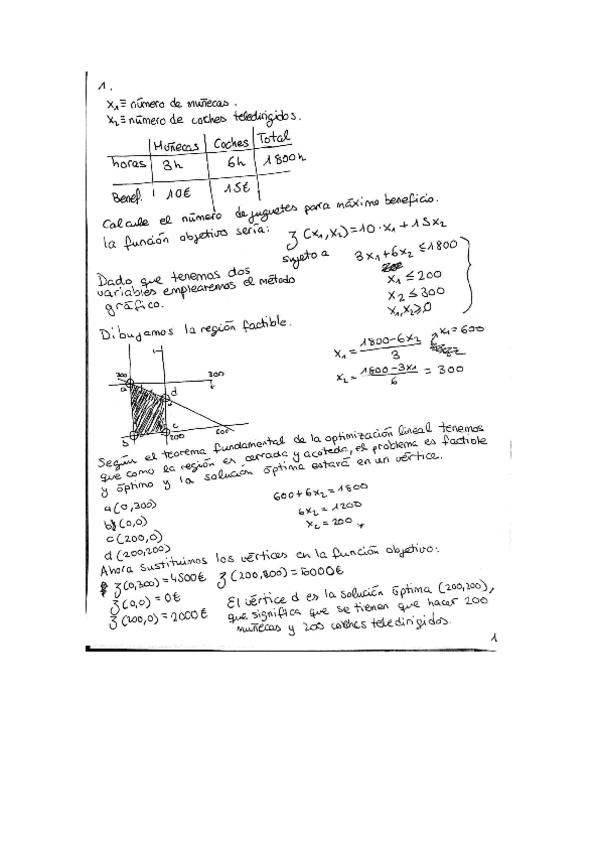 1.
X₁ ≡ número de muñecas.
X₂ ≡ número de coches teledirigidos.
Muñecas Coches Total
horas 3h 6h 1800h
Benef. 10€ 15€
Calcule el número de juguetes para máximo beneficio.
la función objetivo sería: z(x₁,x₂)=10·x₁+15x₂
sujeto a 3x₁+6x₂ ≤ 1800
x₁ ≤ 200
x₂ ≤ 300
x₁,x₂ ≥ 0
Dado que tenemos dos
variables emplearemos el método
gráfico.
Dibujamos la región factible.
x₁ = (1800-6x₂)/3 x₁=600
x₂ = (1800-3x₁)/6 = 300
300 300
a d
b c 200 600
Según el teorema fundamental de la optimización lineal tenemos
que como la región es cerrada y acotada, el problema es factible
y óptimo y la solución óptima estará en un vértice.
a(0,300)
b(0,0)
c(200,0)
d(200,200)
600+6x₂=1800
6x₂=1200
x₂=200
Ahora sustituimos los vértices en la función objetivo:
z(0,300)=4500€ z(200,200)=5000€
z(0,0)=0€
z(200,0)=2000€
El vértice d es la solución óptima (200,200),
que significa que se tienen que hacer 200
muñecas y 200 coches teledirigidos.
1